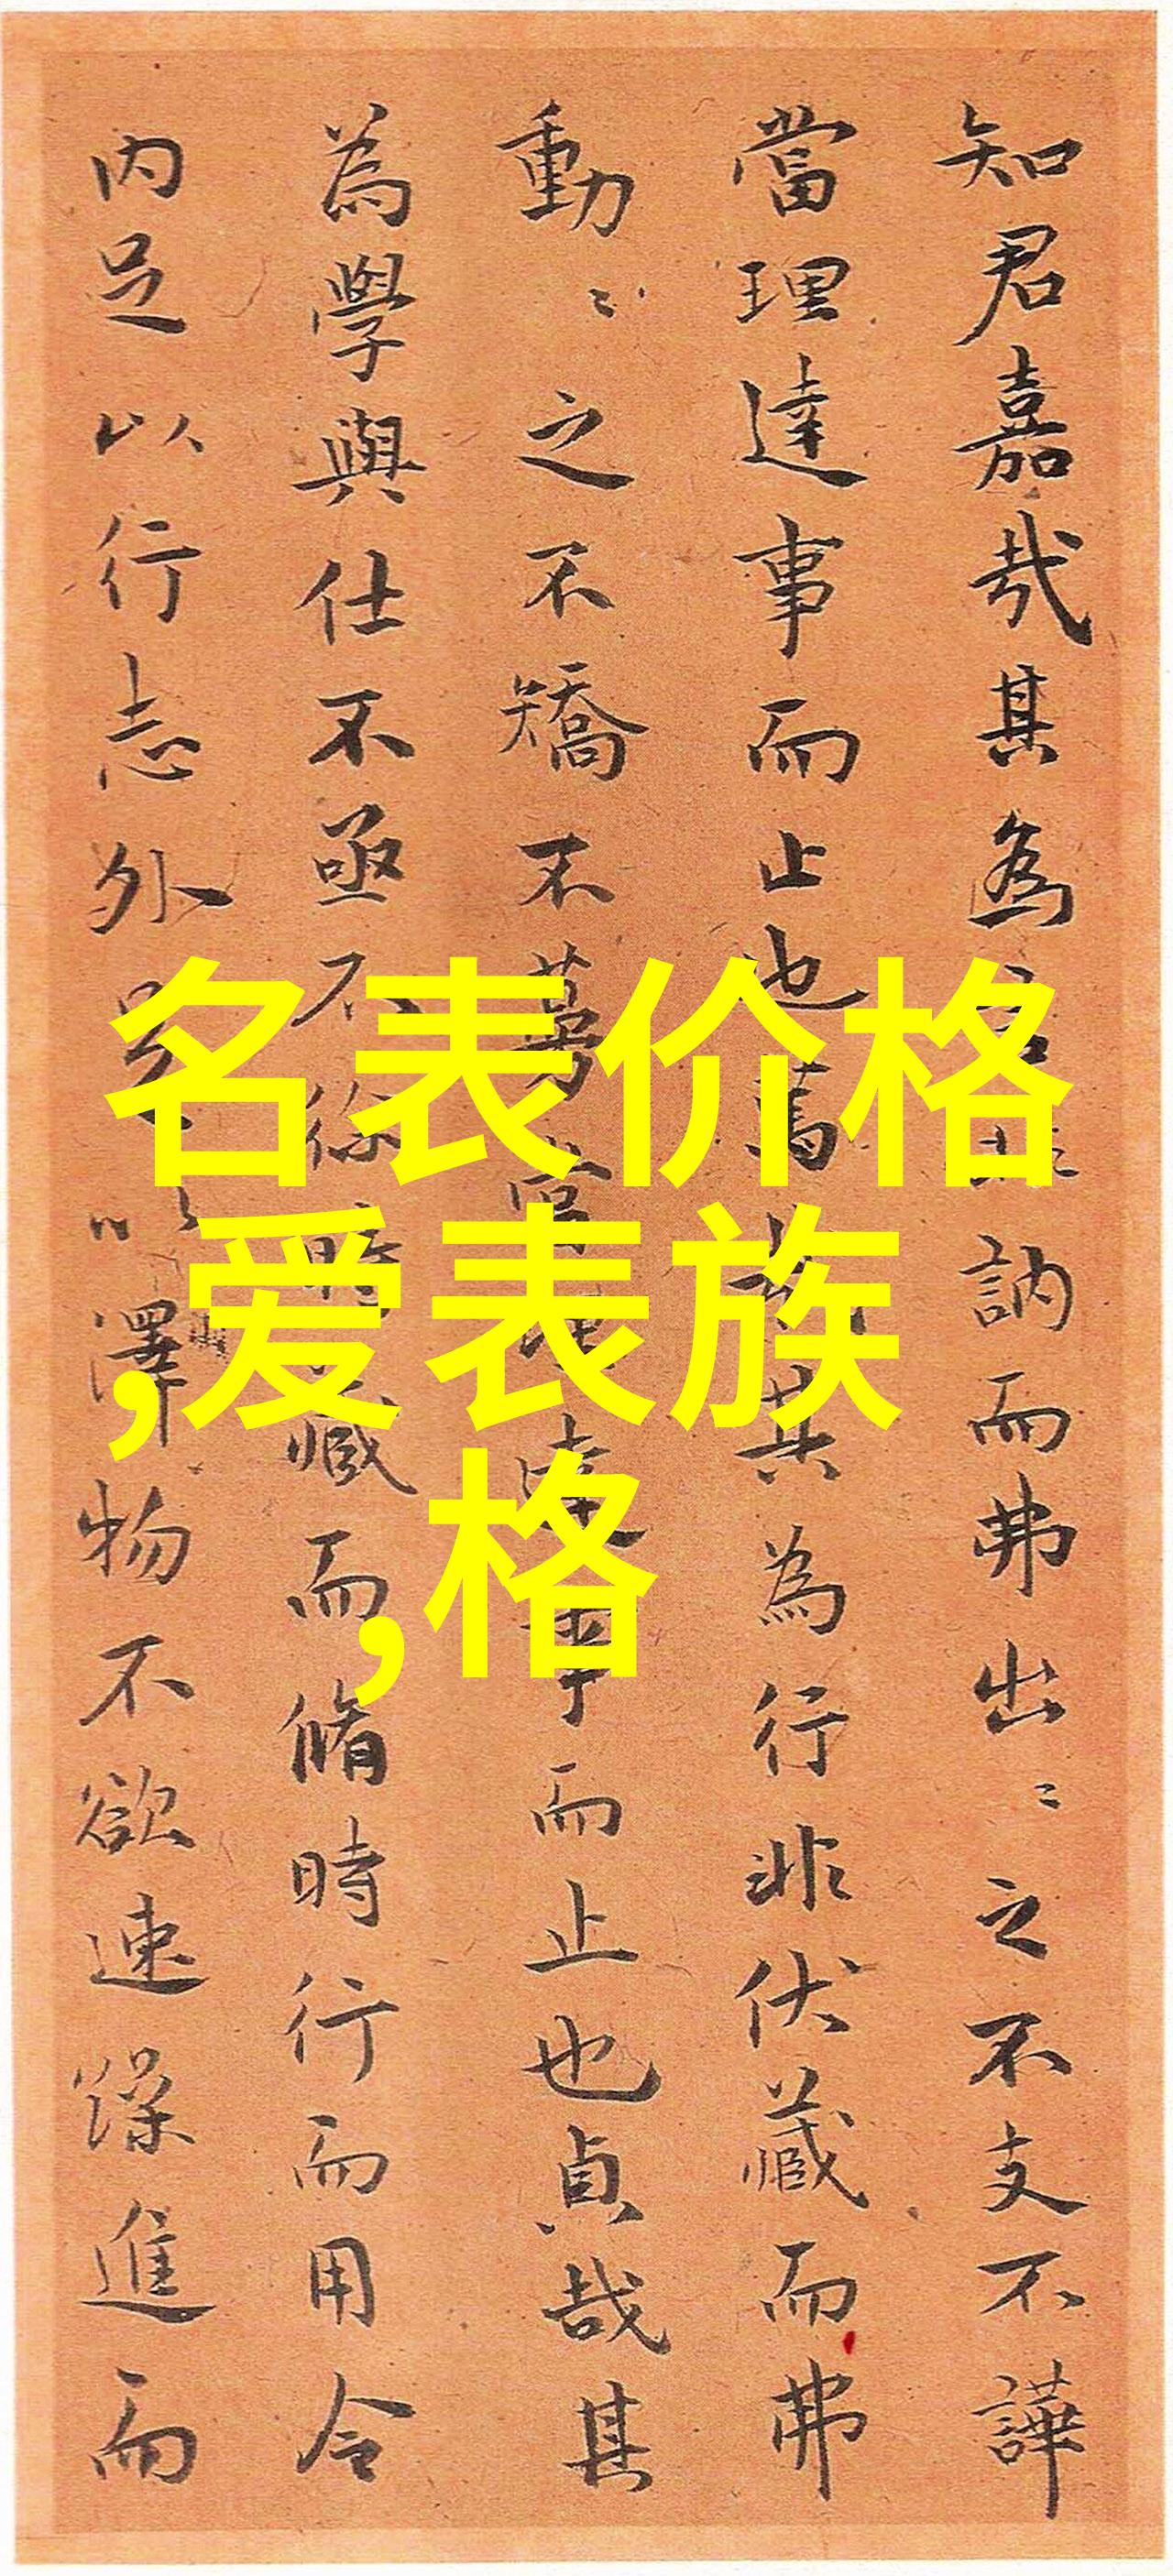 知君嘉哉其為訥而弗出〻之不支不譁
當理達事而止也其為行非伏藏而弗
動〻之不矯不達事而止也貞哉其
為學與仕不亟不徐時藏而脩時行而用令
内足以行志外足以澤物不欲速躁進而
名表价格
,爱表族
,格